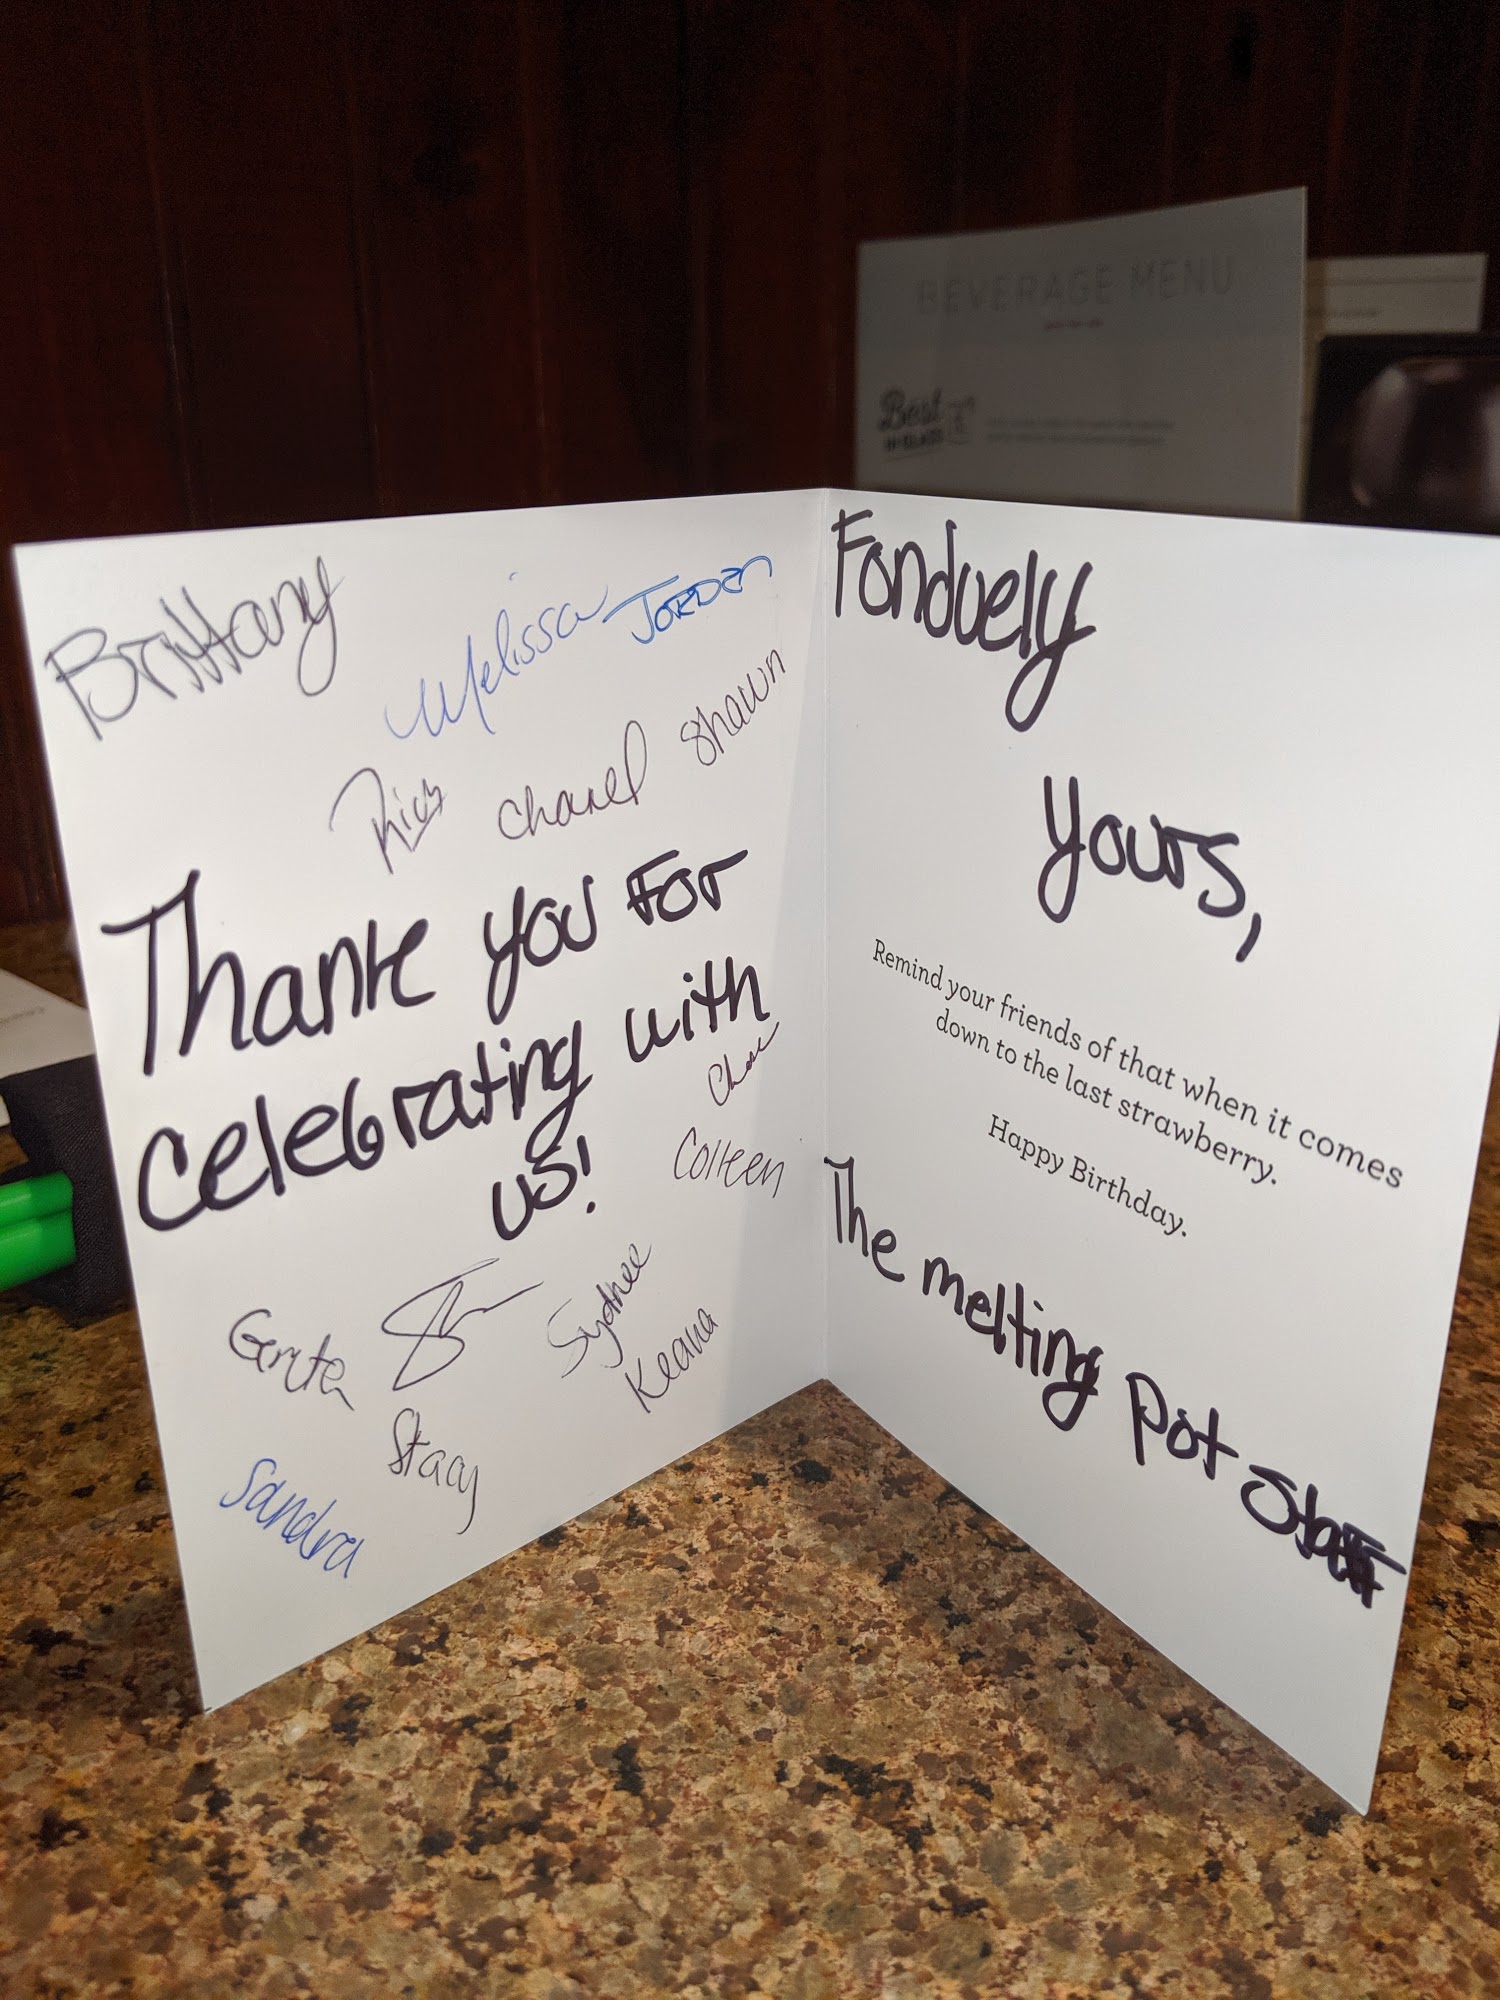 BEVERAGE MENU
Best
IN GLASS
Brittany
Melissa
JORDEN
Chanel
Shawn
Thank you For
Celebrating with
us!
Chase
Colleen
Sydnee
Keana
Stacy
Sandra
Fonduely
Yours,
Remind your friends of that when it comes
down to the last strawberry.
Happy Birthday.
The melting pot Staff